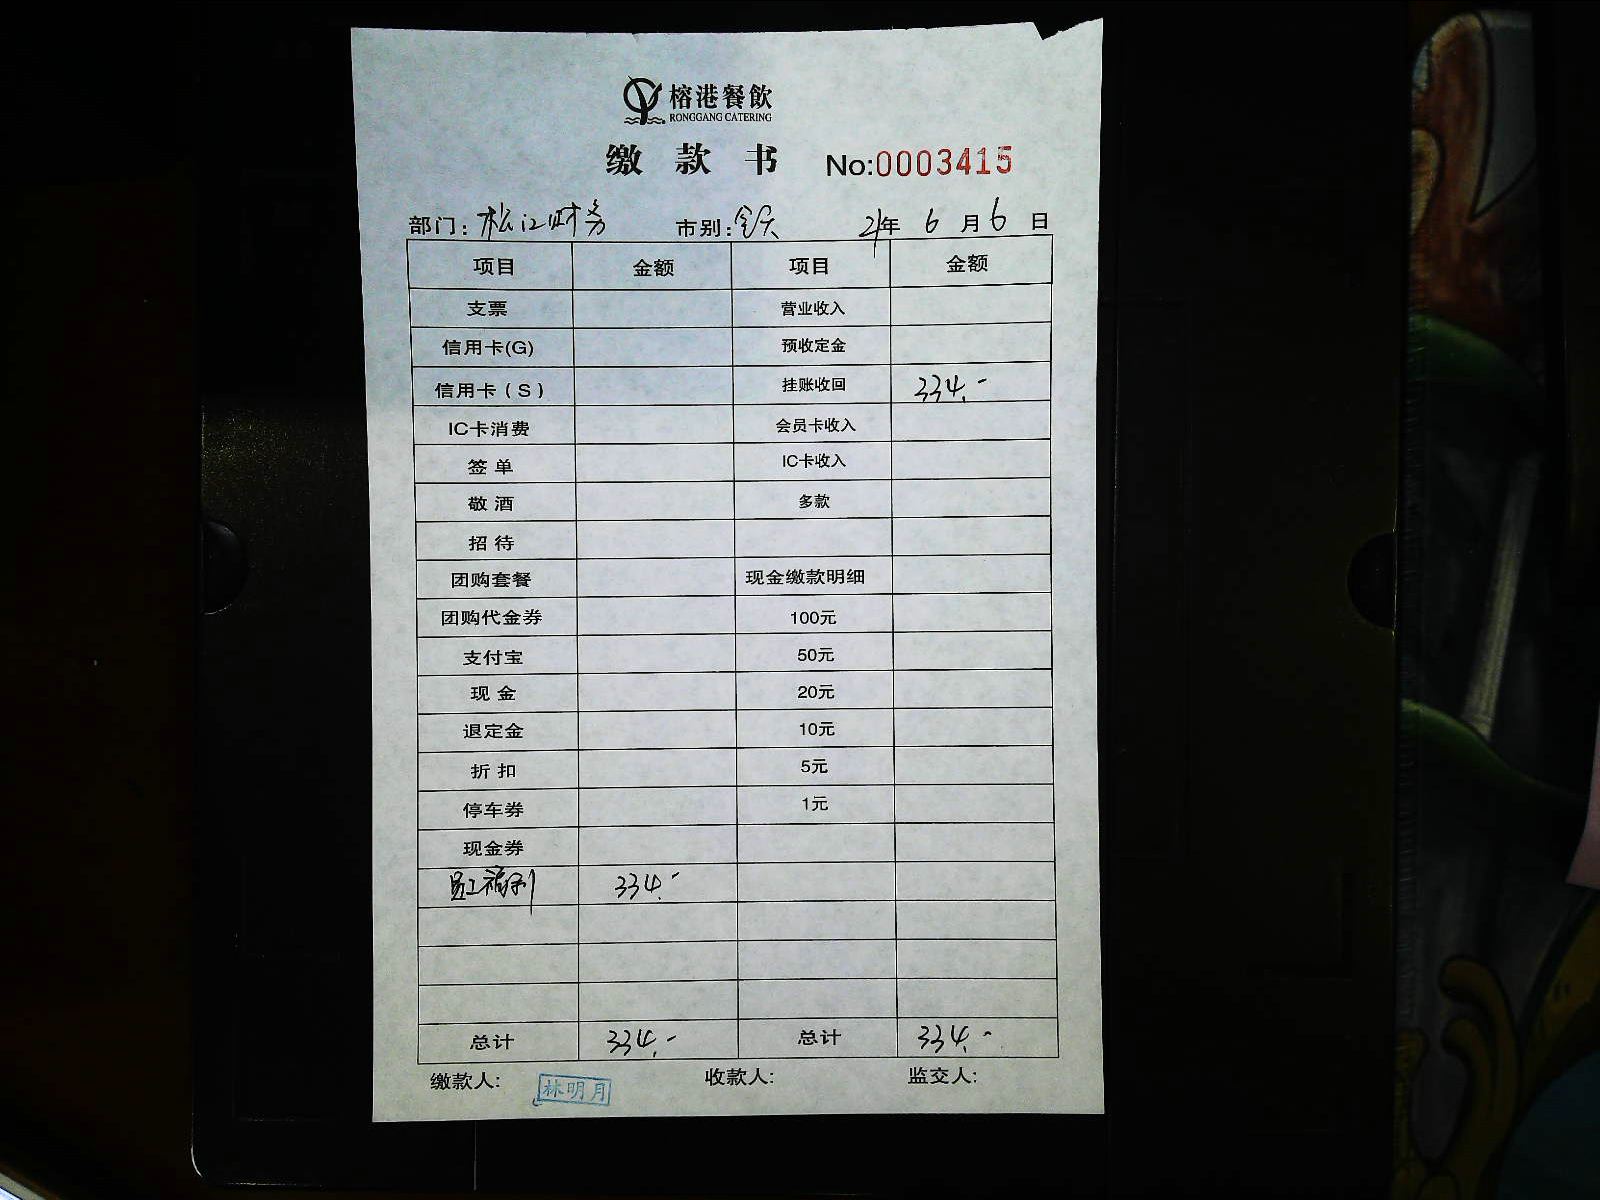 榕港餐飲
RONGGANG CATERING
缴款书 No:0003415
部门: 松江财务 市别: 全天 21年 6月 6日
项目 金额 项目 金额
支票 营业收入
信用卡(G) 预收定金
信用卡(S) 挂账收回 334.-
IC卡消费 会员卡收入
签单 IC卡收入
敬酒 多款
招待
团购套餐 现金缴款明细
团购代金券 100元
支付宝 50元
现金 20元
退定金 10元
折扣 5元
停车券 1元
现金券
员工福利 334.-
总计 334.- 总计 334.-
缴款人: 林明月 收款人: 监交人: